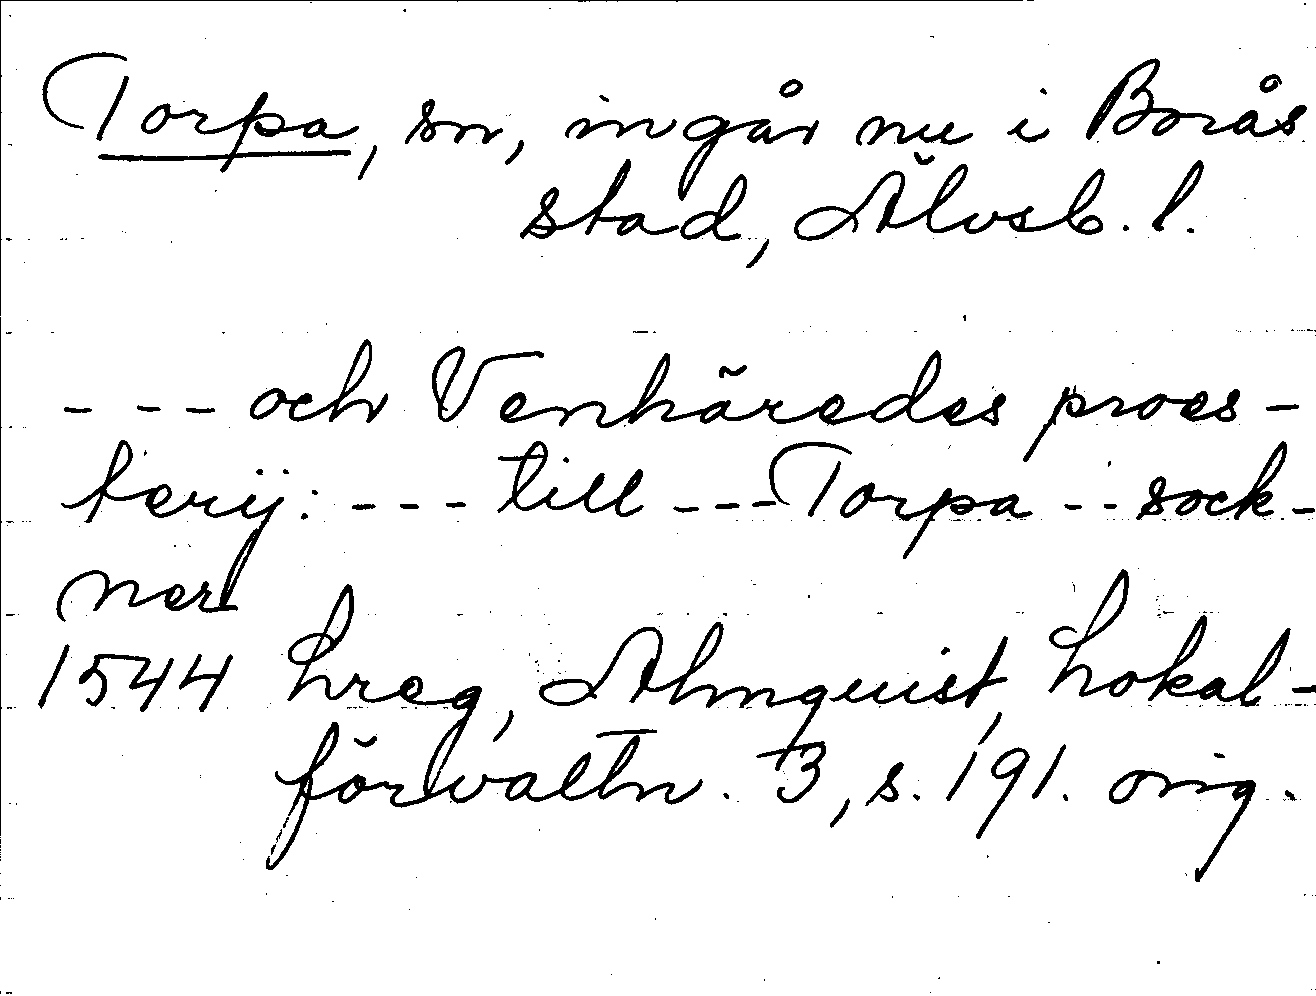 Torpa, sn, ingår nu i Borås
stad, Älvsb. l.
--- och Venhäredes proes-
terij: --- till --- Torpa -- sock-
ner
1544 hreg, Almquist, Lokal-
förvaltn. 3, s. 191. orig.